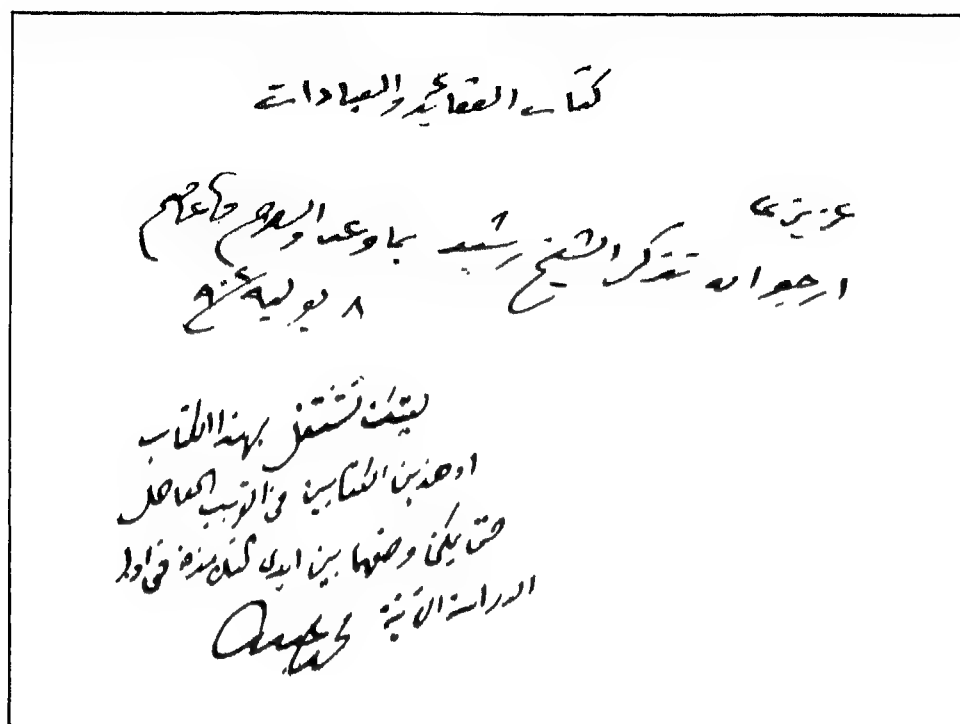 كتاب العقائد والعبادات
عزيزي
ارجو ان تذكر الشيخ رشيد بما وعد والسلام
٨ يوليه ٩٠٤
ليتك تشتغل بهذا الكتاب
او هذين الكتابين في القريب العاجل
حتى يمكن وضعهما بين ايدي التلامذة في اول
الدراسة الآتية محمد عبده